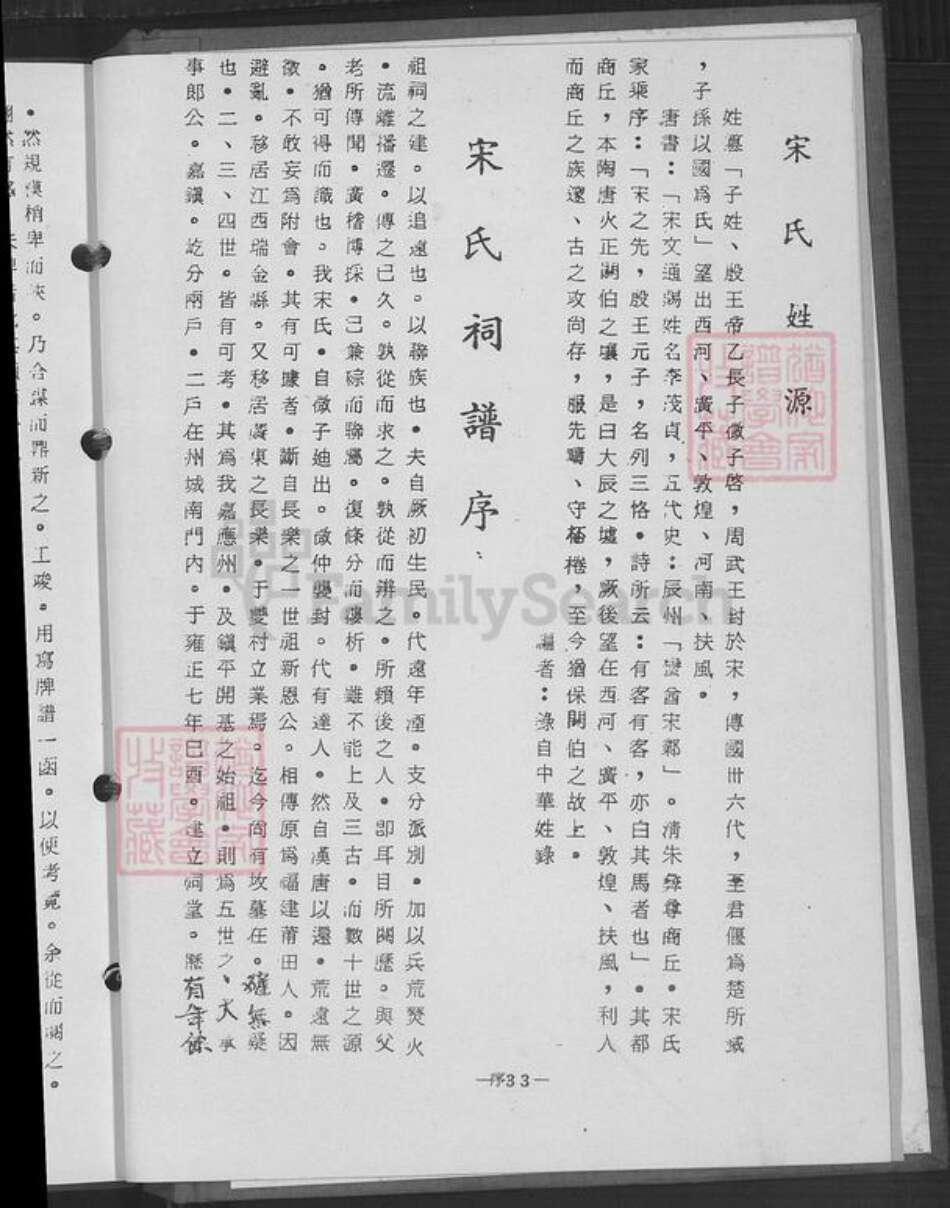 宋氏姓源
姓纂「子姓、殷王帝乙長子微子啓，周武王封於宋，傳國卅六代，至君偃為楚所滅
，子孫以國為氏」望出西河、廣平、敦煌、河南、扶風。
唐書：「宋文通賜姓名李茂貞，五代史：辰州「蠻酋宋鄴」。清朱彝尊商丘。宋氏
家乘序：「宋之先，殷王元子，名列三恪。詩所云：有客有客，亦白其馬者也」。其都
商丘，本陶唐火正閼伯之壤，是曰大辰之墟，厥後望在西河、廣平、敦煌、扶風，利人
而商丘之族邃、古之攻尚存，服先疇、守桮棬，至今猶保閼伯之故上。
編者：錄自中華姓錄
宋氏祠譜序：
祖祠之建。以追遠也。以聯族也。夫自厥初生民。代遠年湮。支分派別。加以兵荒燹火
。流離播遷。傳之已久。孰從而求之。孰從而辨之。所賴後之人。即耳目所閱歷。與父
老所傳聞。廣稽博採。己兼綜而聯屬。復條分而縷析。雖不能上及三古。而數十世之源
。猶可得而識也。我宋氏。自微子廸出。微仲襲封。代有達人。然自漢唐以還。荒遠無
徵。不敢妄為附會。其有可據者。斷自長樂之一世祖新恩公。相傳原為福建莆田人。因
避亂。移居江西瑞金縣。又移居廣東之長樂。于雙村立業焉。迄今尚有坟墓在。確無疑
也。二、三、四世。皆有可考。其為我嘉應州。及鎮平開基之始祖。則為五世之、大事
事郎公。嘉鎮。屹分兩戶。二戶在州城南門內。于雍正七年巳酉。建立祠堂。歷有年餘
—序33—
。然規模稍卑而浹。乃合謀而鼎新之。工竣。用寫牌譜一函。以便考覔。余從而閱之。
FamilySearch